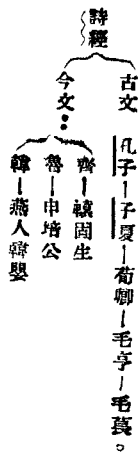 詩經
古文
孔子—子夏—荀卿—毛亨—毛萇。
今文：
齊—轅固生
魯—申培公
韓—燕人韓嬰